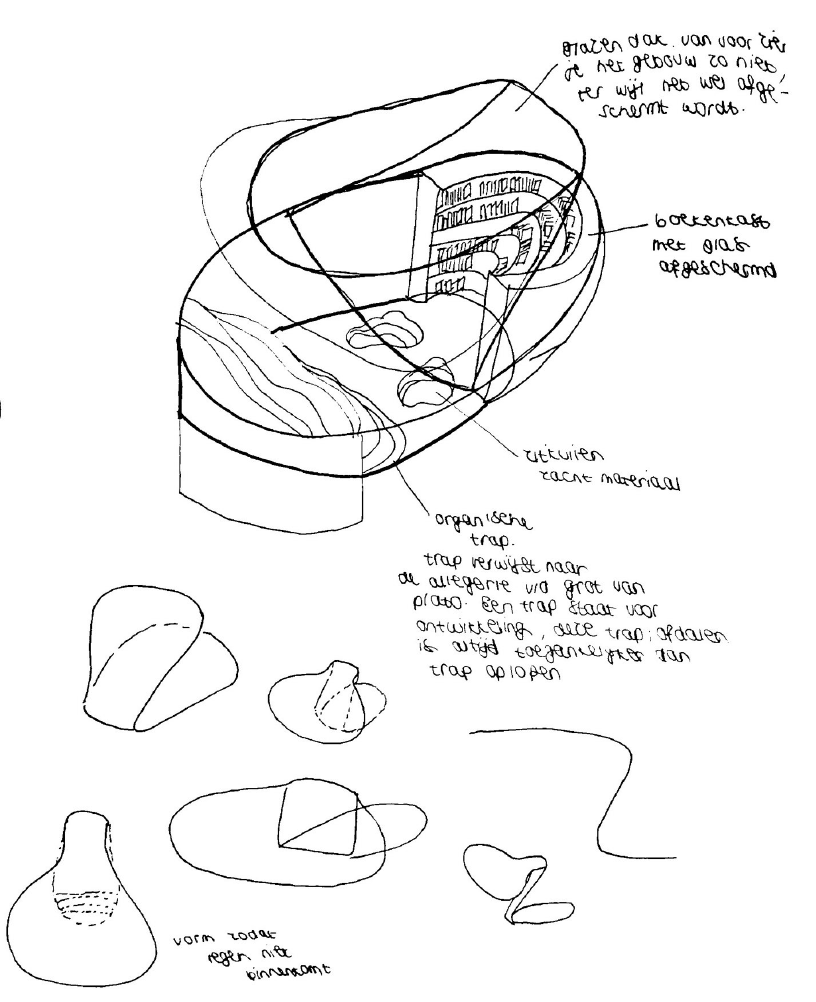 glazen dak. van voor zie
je het gebouw zo niet,
ter wijl het wel afge-
schermt wordt.
boekenkast
met glas
afgeschermd
zitkuilen
zacht materiaal
organische
trap.
trap verwijst naar
de allegorie v/d grot van
plato. Een trap staat voor
ontwikkeling, deze trap; afdalen
is altijd toegankelijker dan
trap oplopen
vorm zodat
regen niet
binnenkomt